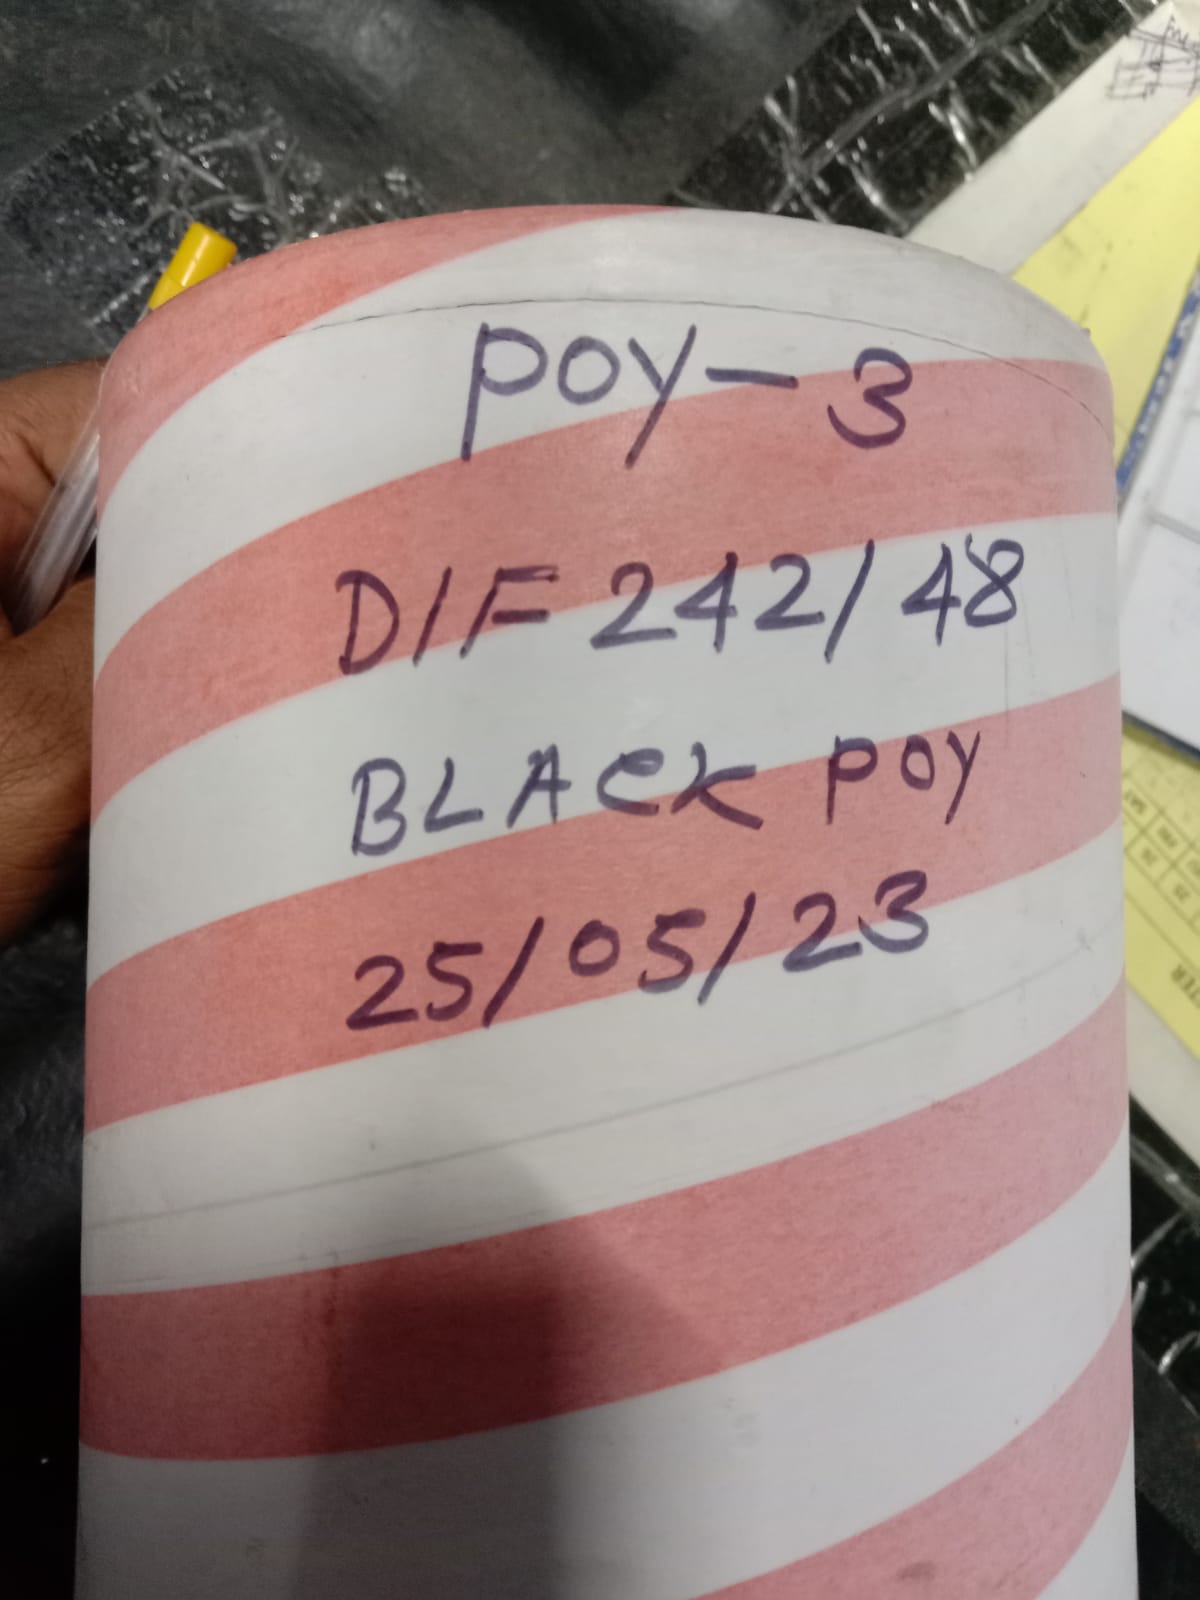 POY-3
D/F 242/48
BLACK POY
25/05/23